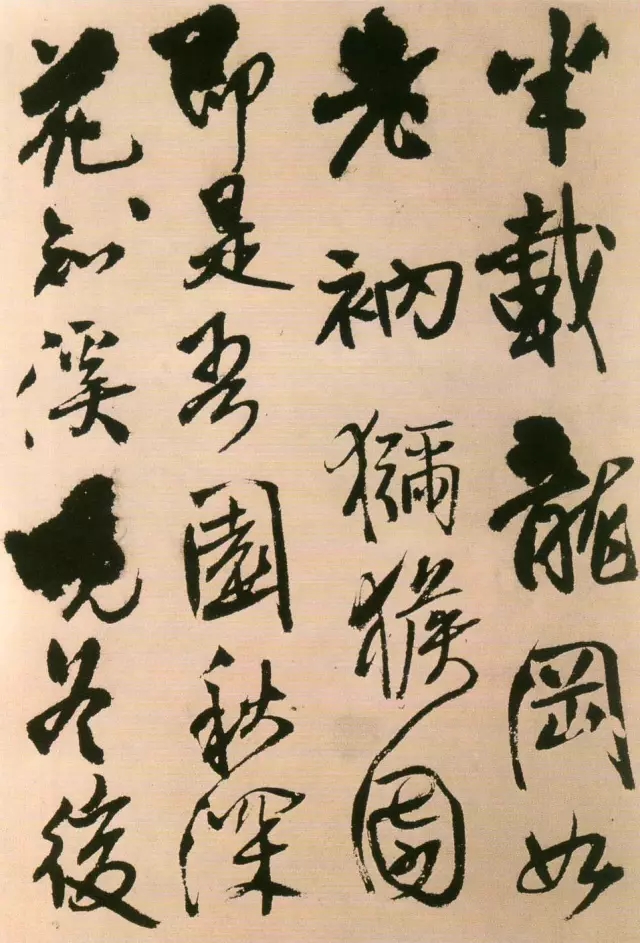 半載龍岡如
老衲獼猴園
即是吾園秋深
花知溪冬後